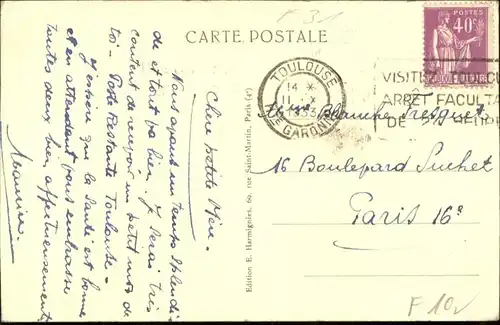 F 31
CARTE POSTALE
POSTES
40c
TOULOUSE
14 *
11 X
1933
Hte GARONNE
VISITEZ
ARRET FACULTA
DE
Chère petite Mère.
Nous ayant un temps splendi
de et tout va bien. Je serai très
content de recevoir un petit mot de
toi - Poste Restante Toulouse.
J'espère que la santé est bonne
et en attendant vous embrasse
toutes deux bien affectueusement
Maurice
Edition E. Harmignies, 69, rue Saint-Martin, Paris (4e)
Blanche
16 Boulevard Suchet
Paris 16e
F 10